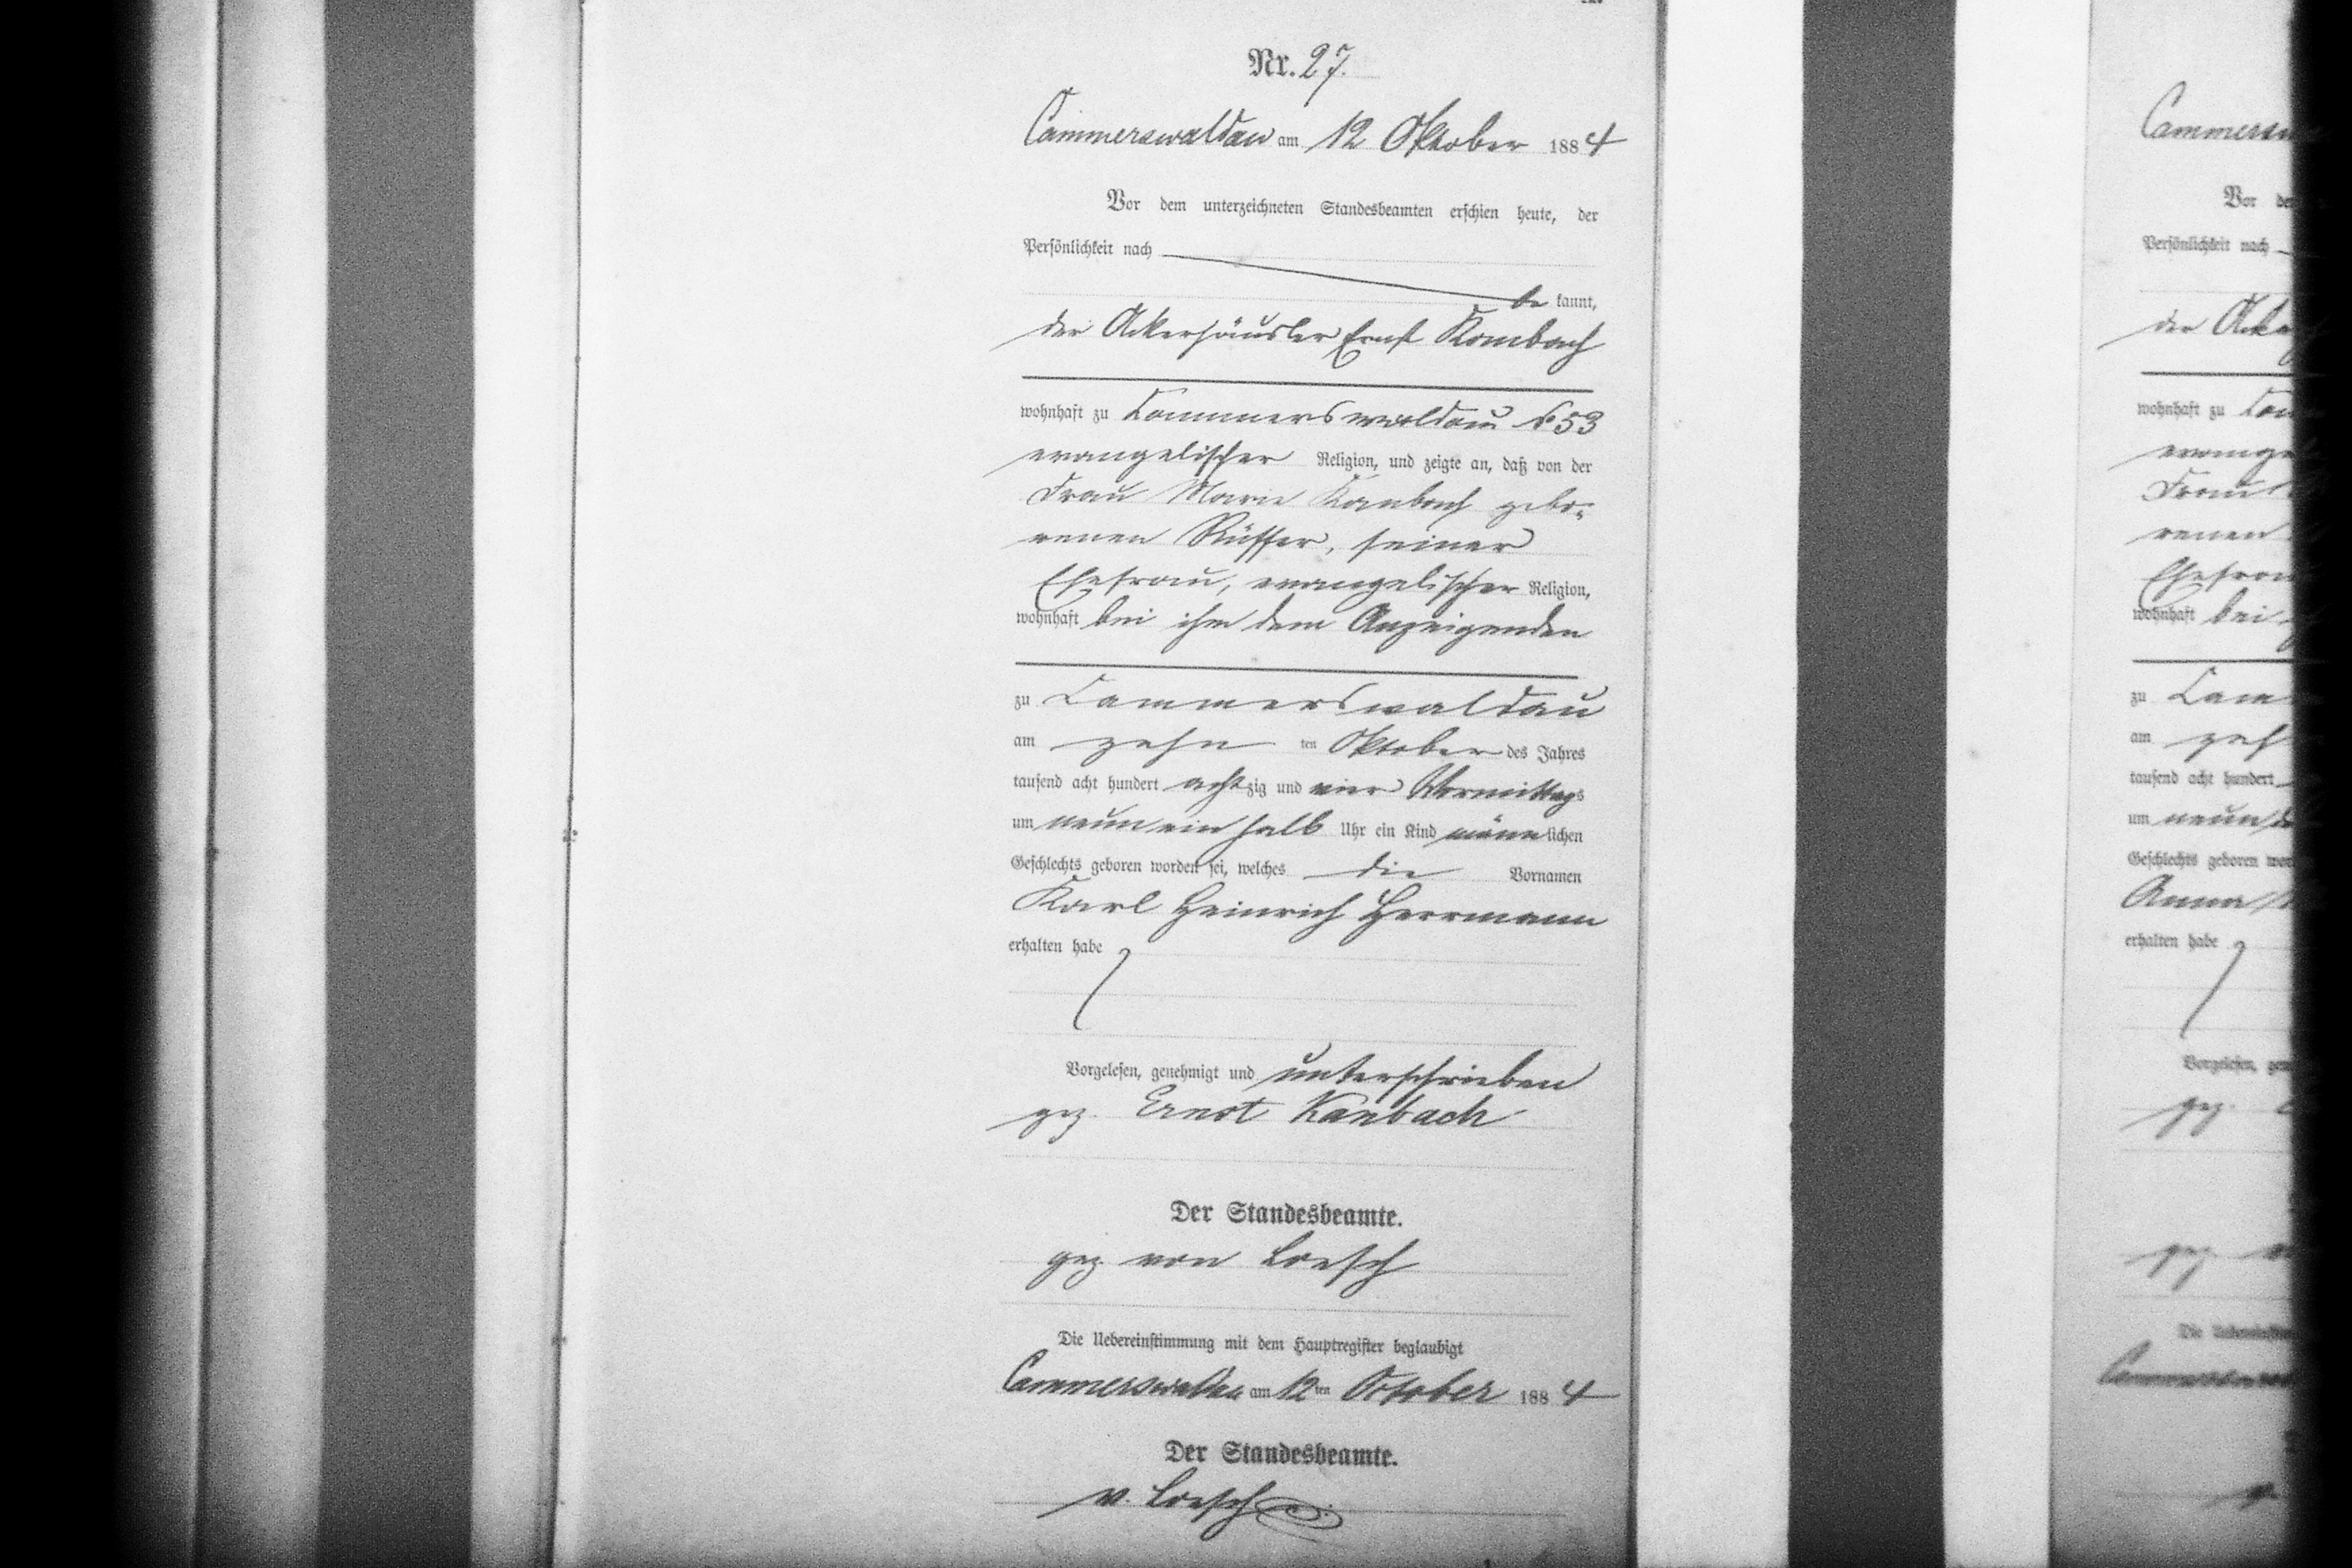 Nr. 27.
Cammerswaldau am 12 Oktober 1884
Vor dem unterzeichneten Standesbeamten erschien heute, der
Persönlichkeit nach
be kannt,
der Ackerhäusler Ernst Kambach
wohnhaft zu Cammerswaldau № 53
evangelischer Religion, und zeigte an, daß von der
Frau Marie Kanbach gebo-
renen Rüffer, seiner
Ehefrau, evangelischer Religion,
wohnhaft bei ihm dem Anzeigenden
zu Cammerswaldau
am zehn ten Oktober des Jahres
tausend acht hundert achtzig und vier Vormittags
um neun ein halb Uhr ein Kind männlichen
Geschlechts geboren worden sei, welches die Vornamen
Karl Heinrich Herrmann
erhalten habe
Vorgelesen, genehmigt und unterschrieben
gez. Ernst Kanbach
Der Standesbeamte.
gez. von Loesch
Die Uebereinstimmung mit dem Hauptregister beglaubigt
Cammerswaldau am 12ten October 1884
Der Standesbeamte.
v. Loesch
Vor
Persönlichkeit nach
der
wohnhaft zu
Frau
renen
wohnhaft bei
zu
am
tausend acht hundert
um neun
Geschlechts geboren
Anna
erhalten habe
Vorgelesen,
gez.
gez.
Die